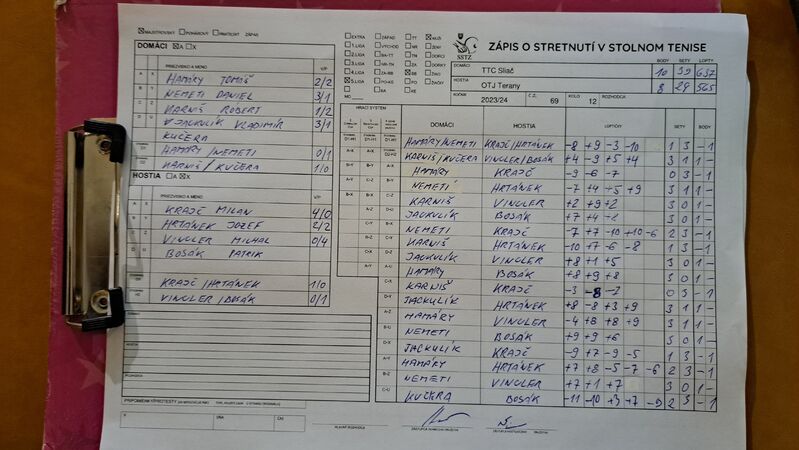 MAJSTROVSKÝ POHÁROVÝ PRIATEĽSKÝ ZÁPAS
DOMÁCI A X
PRIEZVISKO A MENO V/P
HAMÁRY TOMÁŠ 2/2
NEMETI DANIEL 3/1
KARNIŠ RÓBERT 1/2
JACKULÍK VLADIMÍR 3/1
KUČERA
HAMÁRY/NEMETI 0/1
KARNIŠ/KUČERA 1/0
HOSTIA A X
PRIEZVISKO A MENO V/P
KRAJČ MILAN 4/0
HRTÁNEK JOZEF 2/2
VINGLER MICHAL 0/4
BOSÁK PATRIK
KRAJČ/HRTÁNEK 1/0
VINGLER/BOSÁK 0/1
DOMÁCI
HOSTIA
ROZHODCA
PRIPOMIENKY/PROTESTY
EXTRA ZÁPAD TT MUŽI
1.LIGA VÝCHOD NR ŽENY
2.LIGA BA-TT TN DORCI
3.LIGA NR-TN ZA DORKY
4.LIGA ZA-BB BB ŽIACI
5.LIGA PO-KE PO ŽIAČKY
KA KE
SSTZ
ZÁPIS O STRETNUTÍ V STOLNOM TENISE
BODY SETY LOPTY
DOMÁCI TTC Sliač 10 39 637
HOSTIA OTJ Terany 8 28 565
ROČNÍK 2023/24 Č.Z. 69 KOLO 12 ROZHODCA
HRACÍ SYSTÉM
DOMÁCI HOSTIA LOPTIČKY SETY BODY
HAMÁRY/NEMETI KRAJČ/HRTÁNEK -8 +9 -3 -10 1 3 - 1
KARNIŠ/KUČERA VINGLER/BOSÁK +4 -9 +5 +4 3 1 1 -
HAMÁRY KRAJČ -9 -6 -7 0 3 - 1
NEMETI HRTÁNEK -7 +4 -5 +9 3 1 1 -
KARNIŠ VINGLER +2 +9 +2 3 0 1 -
JACKULÍK BOSÁK +7 +4 -2 3 0 1 -
NEMETI KRAJČ -7 +7 -10 +10 -6 2 3 - 1
KARNIŠ HRTÁNEK -10 +7 -6 -8 1 3 - 1
JACKULÍK VINGLER +8 +1 +5 3 0 1 -
HAMÁRY BOSÁK +8 +9 +8 3 0 1 -
KARNIŠ KRAJČ -3 -8 -3 0 3 - 1
JACKULÍK HRTÁNEK +8 -8 +3 +9 3 1 1 -
HAMÁRY VINGLER -4 +8 +8 +9 3 1 1 -
NEMETI BOSÁK +9 +9 +6 3 0 1 -
JACKULÍK KRAJČ -9 +7 -9 -5 1 3 - 1
HAMÁRY HRTÁNEK +7 +8 -5 -7 -6 2 3 - 1
NEMETI VINGLER +7 +1 +7 3 0 1 -
KUČERA BOSÁK -11 -10 +3 +7 -9 2 3 - 1
HLAVNÝ ROZHODCA